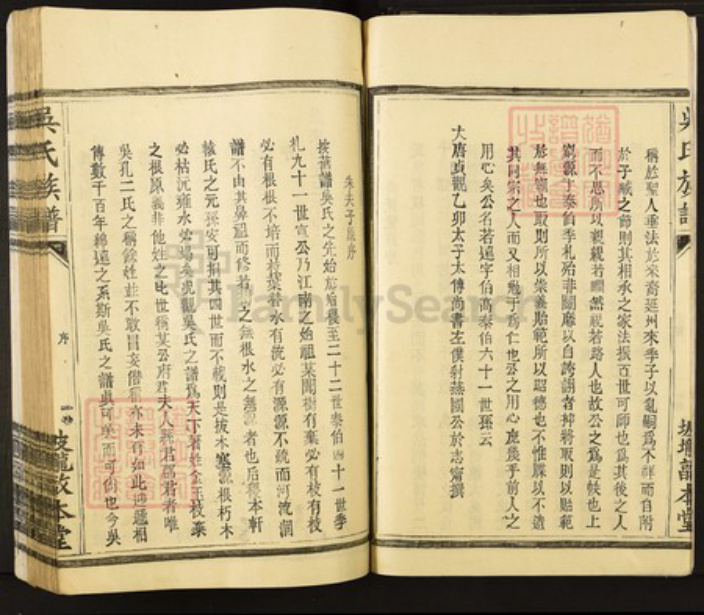 吳氏族譜
稱於聖人垂法於來裔延州來季子以亂嗣爲不祥而自附
於子臧之節則其相承之家法振百世可師也爲其後之人
而不思所以親親若嘿然視若路人也故公之爲是帙也上
泰伯季札殆非關靡以自誇謝者抑將取則以貽範
於無窮也取則所以崇義貽範所以昭德也不惟牒以不遺
其同宗之人而又相勉于爲仁也公之用心庶幾乎前人之
用心矣公名若遠字伯高泰伯六十一世孫云
大唐貞觀乙卯太子太傅尚書左僕射燕國公於志齋撰
朱夫子原序
按舊譜吳氏之先始於后稷至二十二世泰伯四十一世季
札九十一世宣公乃江南之始祖某聞樹有葉必有枝有枝
必有根根不培而枝葉替水有流必有源源不疏而河流涸
譜不由其鼻祖而修若樹之無根水之無源者也后稷本軒
轅氏之元孫安可捐其四世而不載則是拔本塞源根朽木
必枯沅壅水必竭矣嘗觀吳氏之譜爲天下著姓金玉枝葉
之根原義非他姓之比世稱某公府君夫人
吳孔二氏之稱餘姓並不敢冒妄僭稱亦未有如此逓遞相
傳數千百年綿遠之系斯吳氏之譜眞可美而可尚也今吳
吳氏族譜
序
敦本堂
FamilySearch